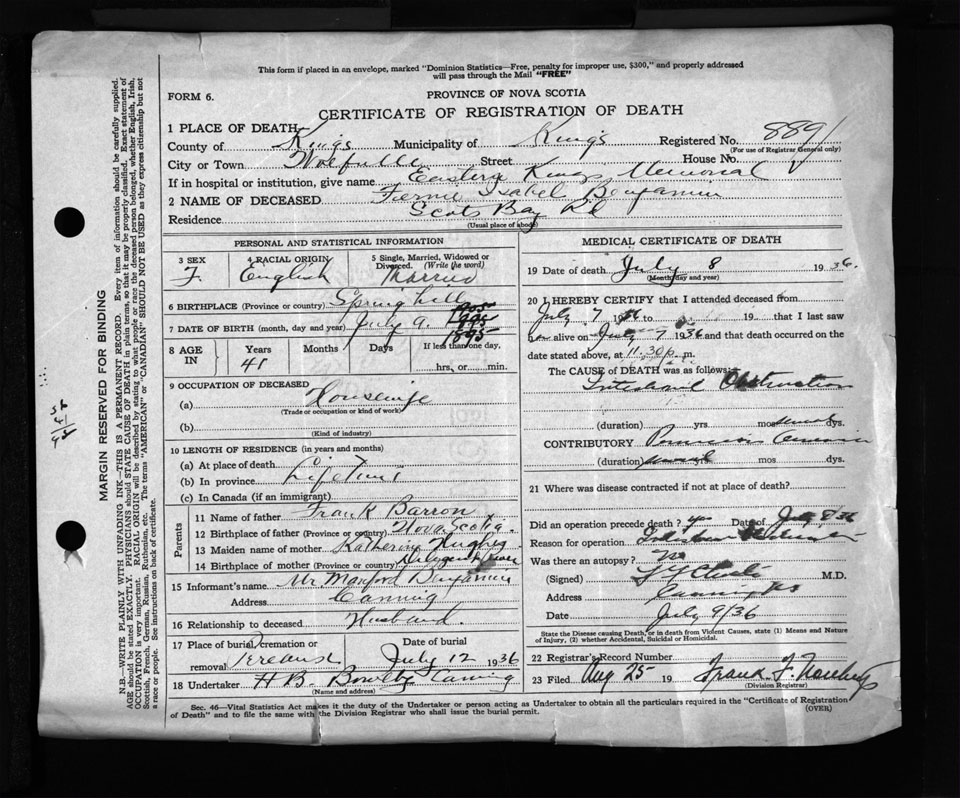 This form if placed in an envelope, marked "Dominion Statistics—Free, penalty for improper use, $300," and properly addressed
will pass through the Mail "FREE"
FORM 6.
PROVINCE OF NOVA SCOTIA
CERTIFICATE OF REGISTRATION OF DEATH
1 PLACE OF DEATH
County of Kings Municipality of Kings Registered No. 889
(For use of Registrar General only)
City or Town Street House No.
If in hospital or institution, give name Eastern Kings Memorial
2 NAME OF DECEASED Isabel Benjamin
Residence Scots Bay Rd
(Usual place of abode)
PERSONAL AND STATISTICAL INFORMATION
3 SEX 4 RACIAL ORIGIN 5 Single, Married, Widowed or
Divorced. (Write the word)
F. English Married
6 BIRTHPLACE (Province or country) Spring hill
7 DATE OF BIRTH (month, day and year) July 9. 1895
8 AGE IN Years Months Days If less than one day,
41 hrs, or min.
9 OCCUPATION OF DECEASED
(a) Housewife
(Trade or occupation or kind of work)
(b)
(Kind of industry)
10 LENGTH OF RESIDENCE (in years and months)
(a) At place of death
(b) In province Life Time
(c) In Canada (if an immigrant)
Parents
11 Name of father Frank Barron
12 Birthplace of father (Province or country) Nova Scotia.
13 Maiden name of mother Katherine Hughes
14 Birthplace of mother (Province or country)
15 Informant's name Mr Manford Benjamin
Address Canning
16 Relationship to deceased Husband.
17 Place of burial, cremation or Date of burial
removal July 12 1936
18 Undertaker H B. Bowlby Canning
(Name and address)
MEDICAL CERTIFICATE OF DEATH
19 Date of death July 8 1936.
(Month day and year)
20 I HEREBY CERTIFY that I attended deceased from
July 7 1936 to 19 that I last saw
h alive on 7 1936 and that death occurred on
the date stated above, at 11:30 p. m.
The CAUSE of DEATH was as follows:
Intestinal Obstruction
(duration) yrs mos dys.
CONTRIBUTORY Pernicious Anaemia
(duration) yrs mos dys.
21 Where was disease contracted if not at place of death?
Did an operation precede death? yes Date of July 8/36
Reason for operation
Was there an autopsy? No
(Signed) M.D.
Address Canning NS
Date July 9/36
State the Disease causing Death, or in death from Violent Causes, state (1) Means and Nature
of Injury, (2) whether Accidental, Suicidal or Homicidal.
22 Registrar's Record Number
23 Filed Aug 25 19
(Division Registrar)
Sec. 46—Vital Statistics Act makes it the duty of the Undertaker or person acting as Undertaker to obtain all the particulars required in the "Certificate of Registration
of Death" and to file the same with the Division Registrar who shall issue the burial permit. (OVER)
MARGIN RESERVED FOR BINDING
N.B.—WRITE PLAINLY WITH UNFADING INK—THIS IS A PERMANENT RECORD. Every item of information should be carefully supplied.
AGE should be stated EXACTLY. PHYSICIANS should STATE CAUSE OF DEATH in plain terms, so that it may be properly classified. Exact statement of
OCCUPATION is very important. RACIAL ORIGIN will be described by stating to what people or race the deceased person belonged, whether English, Irish,
Scottish, French, German, Russian, Ruthenian, etc. The terms "AMERICAN" or "CANADIAN" SHOULD NOT BE USED as they express citizenship but not
a race or people. See instructions on back of certificate.